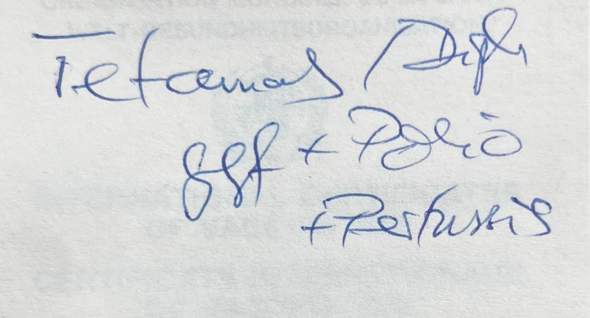 Tetanus / Diph
ggf + Polio
+ Pertussis